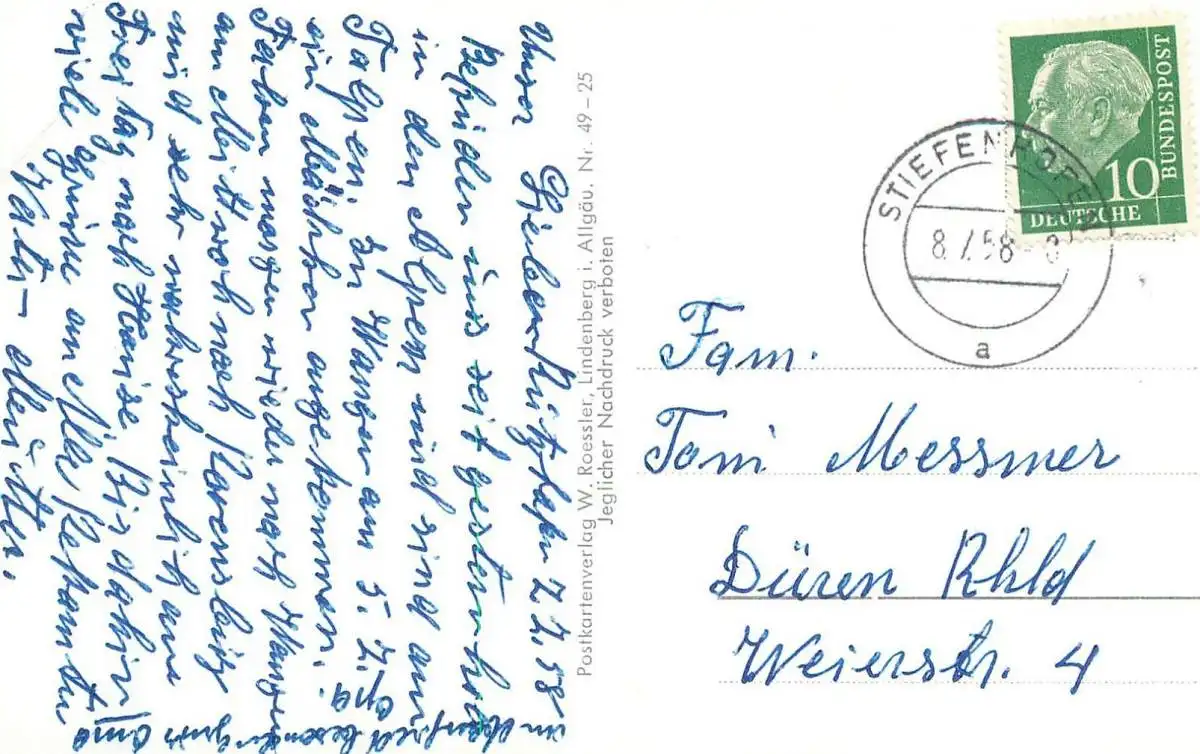 Unsere Lieben 7.7.58
Befinden uns seit gestern hier
in den Alpen und sind am
5. 7.
in Wangen am
ein angekommen.
Fahren morgen wieder nach Wangen
am Mittwoch nach Ravensburg
und sehr wahrscheinlich am
Freitag nach Hause. Bis dahin
viele Grüsse an alle Bekannten
Vater - Mutter.
besonder Gruss Oma
Opa
Postkartenverlag W. Roessler, Lindenberg i. Allgäu. Nr. 49 – 25
Jeglicher Nachdruck verboten
BUNDESPOST
10
DEUTSCHE
STIEFENHOFEN
8.7.58
a
Fam.
Toni Messmer
Düren Rhld
Weierstr. 4